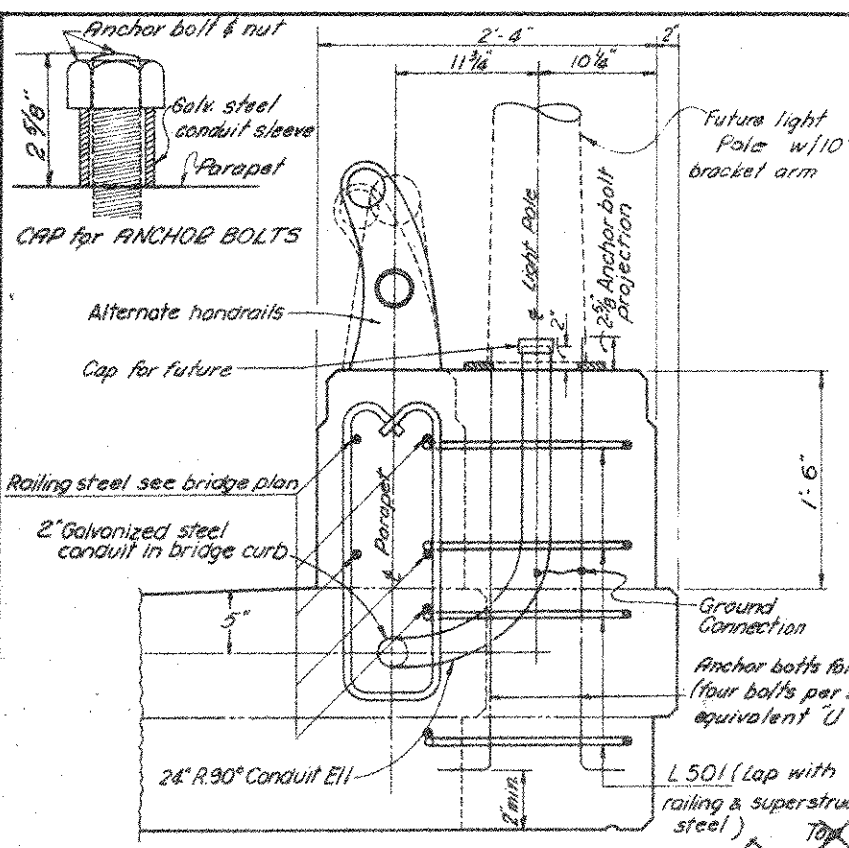 Anchor bolt & nut
2 5/8"
Galv. steel
conduit sleeve
Parapet
CAP for ANCHOR BOLTS
2'-4"
2"
11 3/4"
10 1/4"
Future light
Pole w/10'
bracket arm
℄ Light Pole
2"
2 5/8" Anchor bolt
projection
Alternate handrails
Cap for future
Railing steel see bridge plan
℄ Parapet
1'-6"
2" Galvanized steel
conduit in bridge curb
5"
Ground
Connection
Anchor bolts for
(four bolts per
equivalent "U
24" R. 90° Conduit Ell
2" min.
L 501 (Lap with
railing & superstruc
steel)